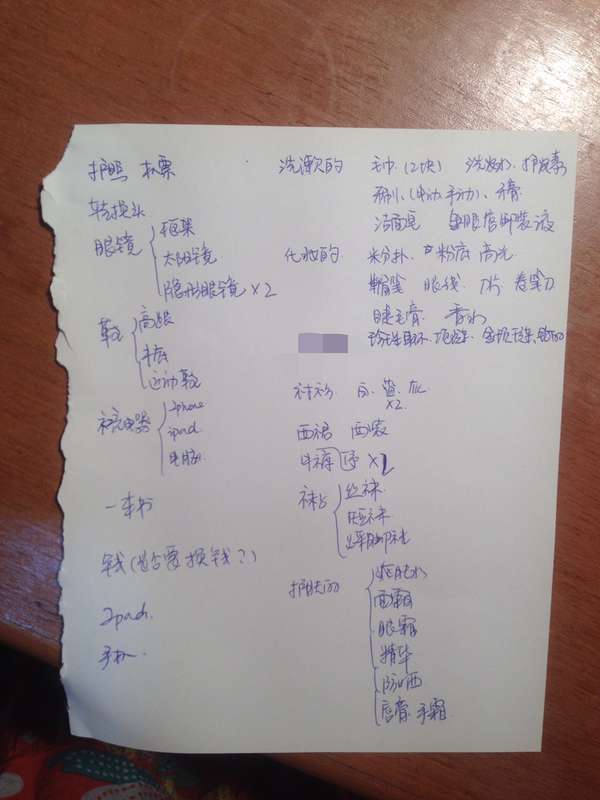 护照 机票
转换头
眼镜 框架
太阳镜
隐形眼镜 ×2
鞋 高跟
平底
运动鞋
充电器 Iphone
ipad
电脑
一本书
钱(是否要换钱?)
Ipad
手机
洗漱的 毛巾(2块) 洗发水 护发素
牙刷(电动 手动)、牙膏
洁面 眼唇卸妆液
化妆的 粉扑 粉底 高光
眉笔 眼线 刀片 卷笔刀
睫毛膏 香水
珍珠耳环 项链
衬衫 白 蓝
×2
西裙 西装
牛裤 ×2
袜子 丝袜
短袜
护肤的 爽肤水
面霜
眼霜
精华
防晒
唇膏 手霜